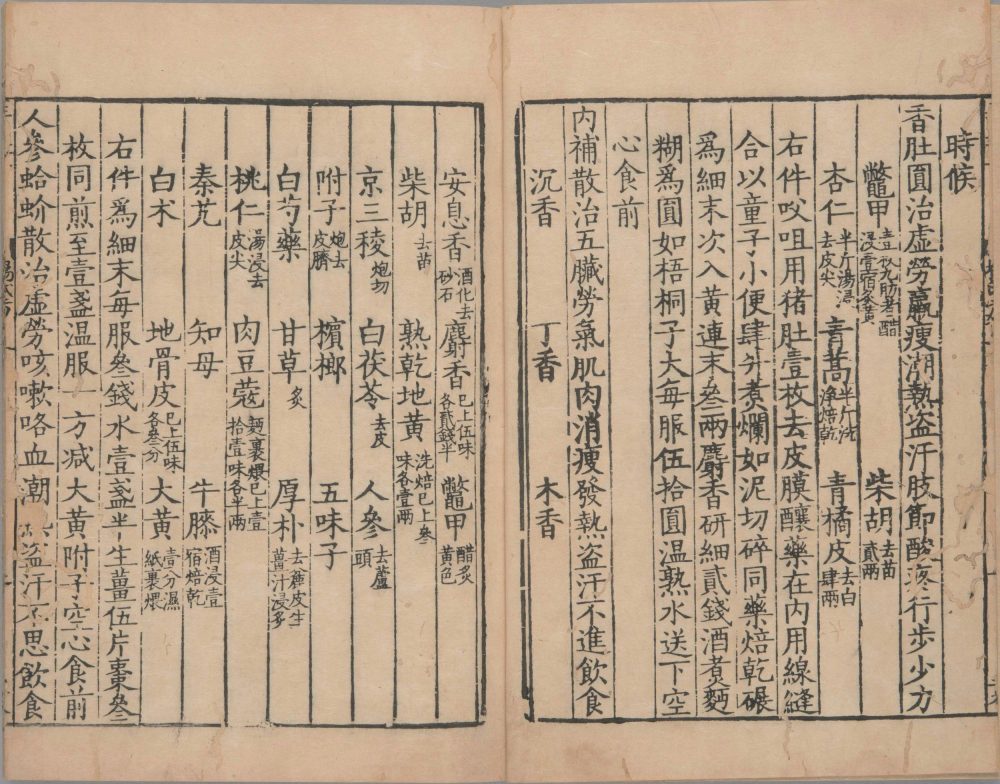 時候
香肚圓治虛勞羸瘦潮熱盜汗肢節酸疼行步少力
鱉甲 壹枚九肋者醋浸壹宿炙黃 柴胡 去苗貳兩
杏仁 半斤湯浸去皮尖 青蒿 半斤洗淨焙乾 青橘皮 去白肆兩
右件㕮咀用猪肚壹枚去皮膜釀藥在內用線縫
合以童子小便肆升煮爛如泥切碎同藥焙乾碾
爲細末次入黃連末叁兩麝香研細貳錢酒煮麪
糊爲圓如梧桐子大每服伍拾圓温熟水送下空
心食前
內補散治五臟勞氣肌肉消瘦發熱盜汗不進飲食
沉香 丁香 木香
安息香 酒化去砂石 麝香 已上伍味各貳錢半 鱉甲 醋炙黃色
柴胡 去苗 熟乾地黃 洗焙已上叁味各壹兩
京三稜 炮切 白茯苓 去皮 人參 去蘆頭
附子 炮去皮臍 檳榔 五味子
白芍藥 甘草 炙 厚朴 去麄皮生薑汁浸炙
桃仁 湯浸去皮尖 肉豆蔻 麵裹煨已上壹拾壹味各半兩
秦艽 知母 牛膝 酒浸壹宿焙乾
白术 地骨皮 已上伍味各叁分 大黃 壹分濕紙裹煨
右件爲細末每服叁錢水壹盞半生薑伍片棗叁
枚同煎至壹盞温服一方减大黃附子空心食前
人參蛤蚧散治虛勞咳嗽咯血潮熱盜汗不思飲食